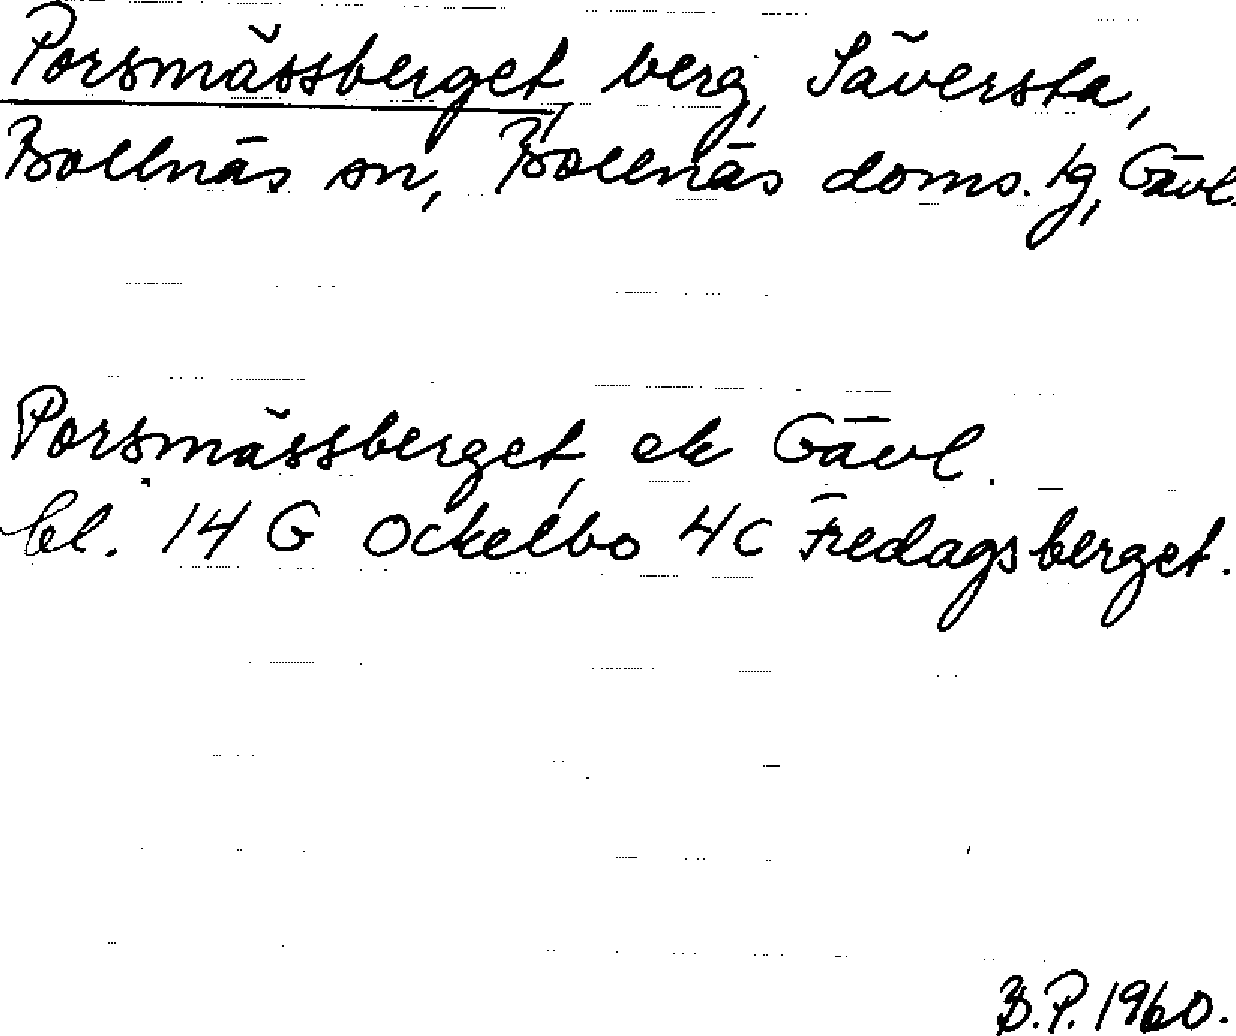 Porsmässberget, berg, Säversta,
Bollnäs sn, Bollnäs doms. tg, Gävl.
Porsmässberget, ek Gävl.
bl. 14 G Ockelbo 4c Fredagsberget.
B.P. 1960.